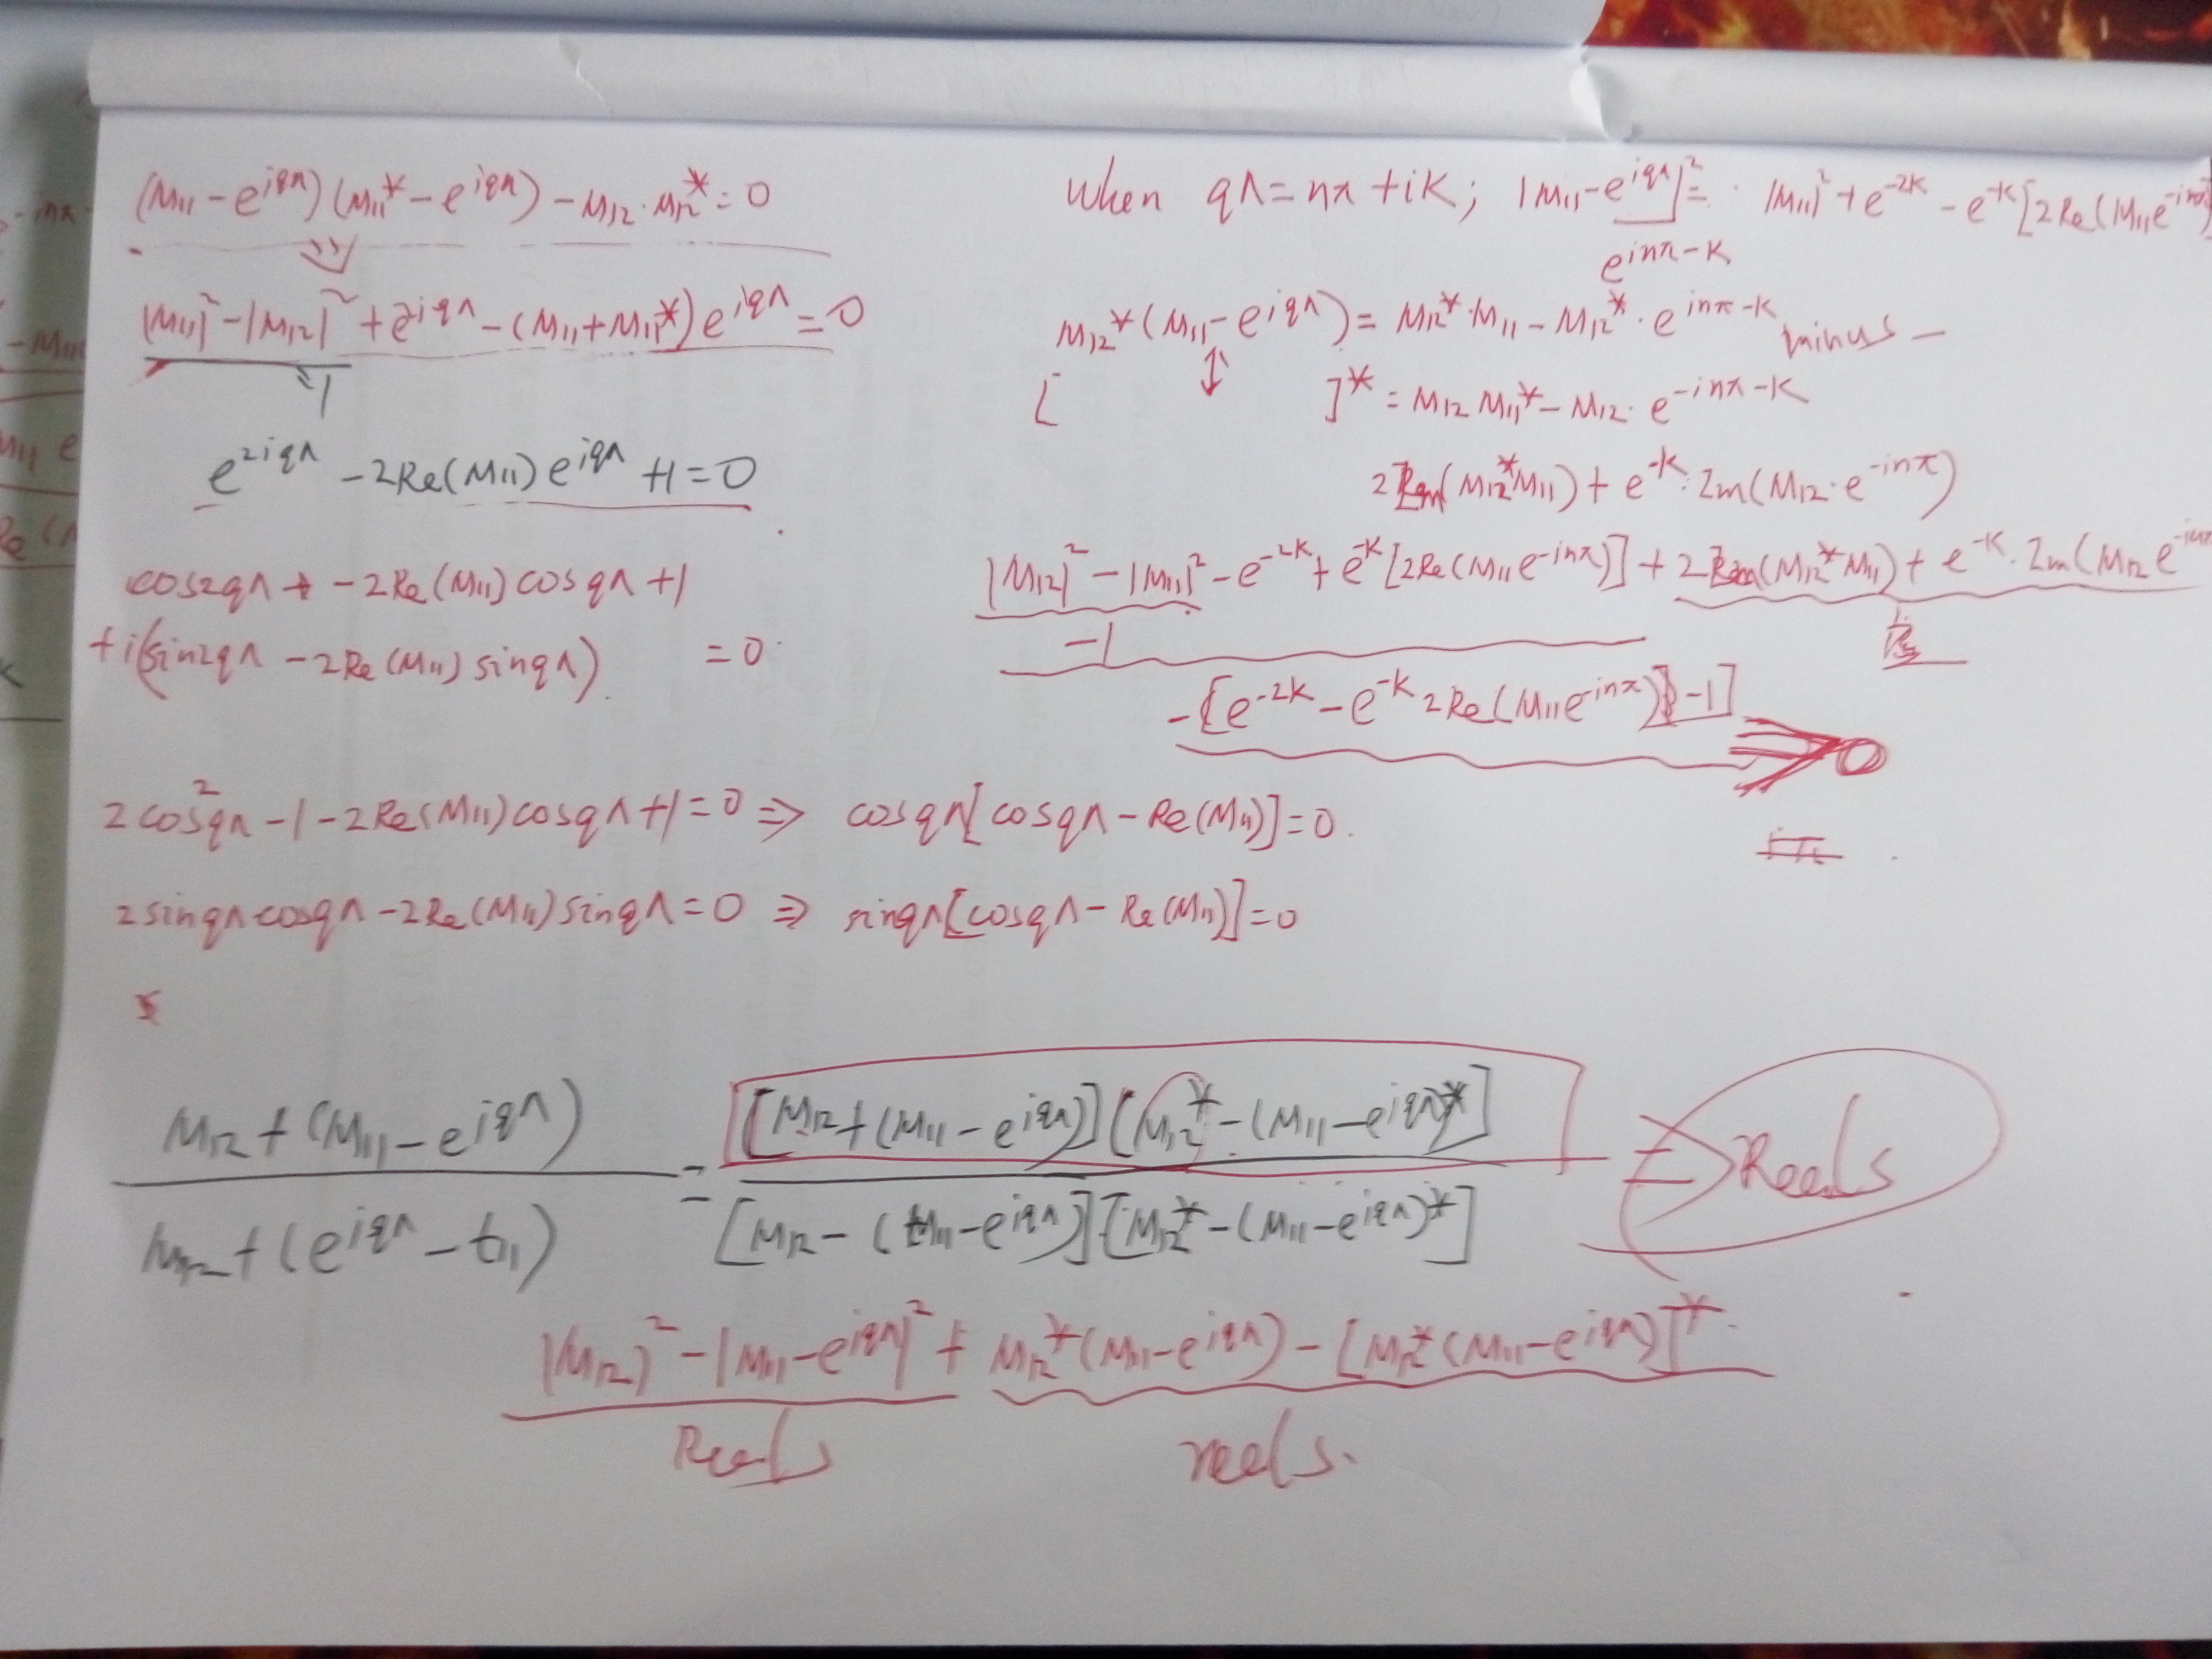 (M11 − e^{iqΛ})(M11* − e^{iqΛ}) − M12·M12* = 0
|M11|² − |M12|² + e^{2iqΛ} − (M11 + M11*) e^{iqΛ} = 0
1
e^{2iqΛ} − 2Re(M11) e^{iqΛ} + 1 = 0
cos2qΛ + − 2Re(M11) cosqΛ + 1
+ i(sin2qΛ − 2Re(M11) sinqΛ) = 0
2cos²qΛ − 1 − 2Re(M11)cosqΛ + 1 = 0 ⇒ cosqΛ[cosqΛ − Re(M11)] = 0.
2sinqΛcosqΛ − 2Re(M11)sinqΛ = 0 ⇒ sinqΛ[cosqΛ − Re(M11)] = 0
When qΛ = nπ + iK; |M11 − e^{iqΛ}|² = |M11|² + e^{-2K} − e^{-K}[2Re(M11e^{-inπ})]
e^{inπ−K}
M12*(M11 − e^{iqΛ}) = M12*·M11 − M12*·e^{inπ−K} minus −
[ ↕ ]* = M12 M11* − M12·e^{-inπ−K}
2Im(M12*M11) + e^{-K}·Im(M12·e^{-inπ})
|M12|² − |M11|² − e^{-2K} + e^{-K}[2Re(M11e^{-inπ})] + 2Im(M12*M11) + e^{-K}·Im(M12 e^{-inπ}
−1
−[e^{-2K} − e^{-K} 2Re(M11e^{-inπ})} − 1] ⇒ 0
M12 + (M11 − e^{iqΛ}) / M12 + (e^{iqΛ} − t11) = [M12 + (M11 − e^{iqΛ})][M12* − (M11 − e^{iqΛ})*] / [M12 − (M11 − e^{iqΛ})][M12* − (M11 − e^{iqΛ})*] ⇒ Reels
|M12|² − |M11 − e^{iqΛ}|² + M12*(M11 − e^{iqΛ}) − [M12*(M11 − e^{iqΛ})]*.
Reels reels.